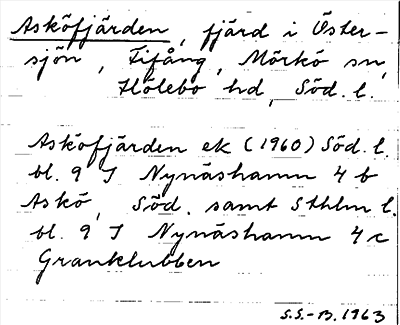 Asköfjärden, fjärd i Öster-
sjön, Fifång, Mörkö sn,
Hölebo hd, Söd. l.
Asköfjärden ek (1960) Söd. l.
bl. 9 I Nynäshamn 4 b
Askö, Söd. samt Sthlm l.
bl. 9 I Nynäshamn 4 c
Granklubben
S.S.-B. 1963